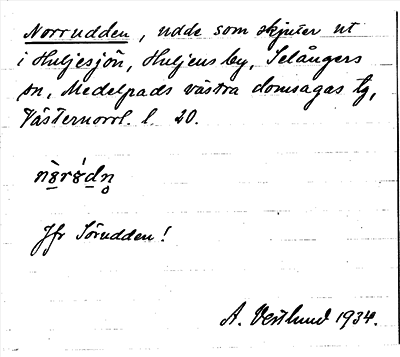 Norrudden, udde som skjuter ut
i Huljesjön, Huljens by, Selångers
sn, Medelpads västra domsagas tg,
Västernorrl. l. 20.
Jfr Sörudden!
A. Vestlund 1934.